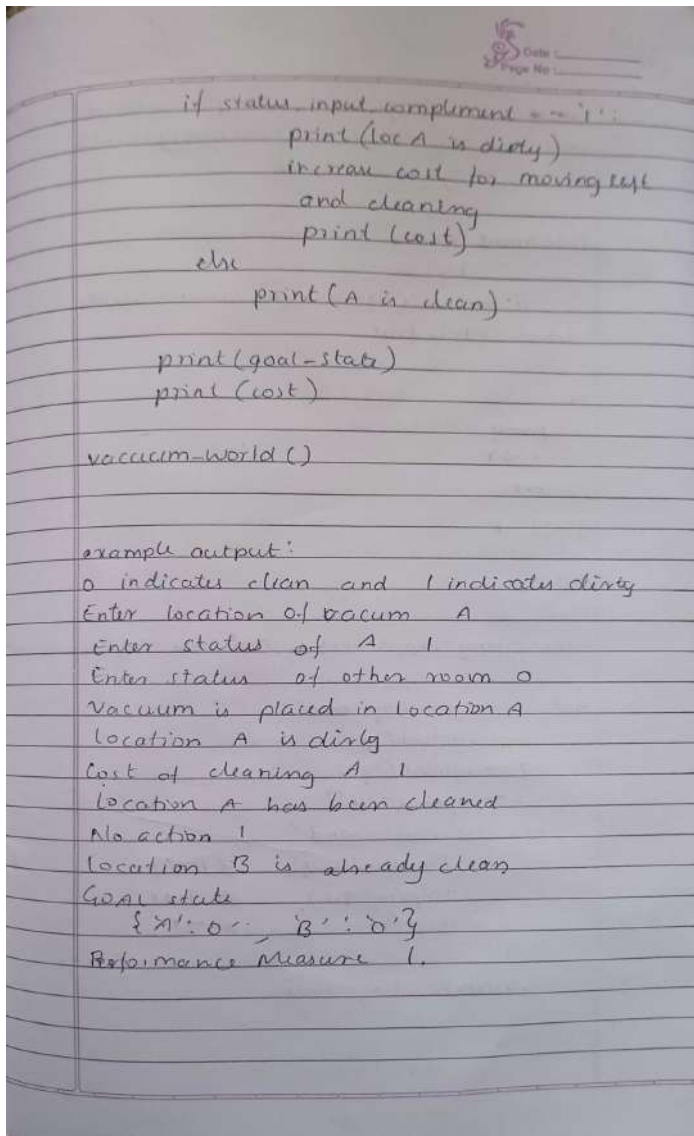 Date :
Page No :
if status_input_complement == '1':
print(loc A is dirty)
increase cost for moving left
and cleaning
print (cost)
else
print (A is clean)
print (goal-state)
print (cost)
vacuum-world ()
example output:
0 indicates clean and 1 indicates dirty
Enter location of vacum A
Enter status of A 1
Enter status of other room 0
Vacuum is placed in location A
location A is dirty
Cost of cleaning A 1
Location A has been cleaned
No action 1
location B is already clean
GOAL state
{'A': '0', 'B': '0'}
Performance Measure 1.